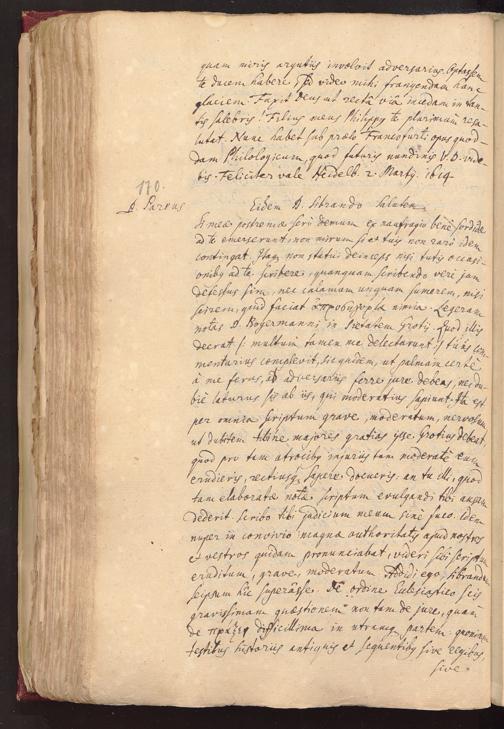 quam miris argutiis involvit adversarius. Optassem
te ducem habere, sed video mihi frangendam hanc
glaciem. Faxit Deus ut recta via incedam in tan-
tis salebris! Filius meus Philippus te plurimum resa-
lutat. Nunc habet sub praelo Francofurti opus quod-
dam Philologicum, quod futuris nundinis V. D. vide-
bis. Feliciter vale Heidelb. 2. Martij. 1614
110.
D. Pareus
Eidem D. Sibrando Salutem
Si meae postremae serius demum ex naufragio bene sordidae
ad te emerserunt, non mirum si et tuis non raro idem
contingat. Itaq non statui deinceps nisi tutis occasi-
onibus ad te scribere, quanquam scribendo vere jam
defessus sim, nec calamum unquam sumerem, nisi
scirem, quid faciat nimia. Legeram
notas D. Bogermanni in Pietatem Grotij. Quod illis
deerat (multum tamen me delectarunt) tuus com-
mentarius complevit, siquidem, ut palmam certe
à me feras, et adversariis ferre jure debeas, nec du-
bie laturus sis ab iis, qui moderatius sapiunt. Ita est
per omnia scriptum grave, moderatum, nervosum
ut dubitem tibine majores gratias ipse Grotius debeat
quod pro tam atrocibus injuriis tam moderate eum
erudieris, rectiusq sapere docueris. an tu illi, quod
tam elaborate notae scriptum evulgandi tibi ansam
dederit. scribo tibi judicium meum sine fuco. Idem
nuper in convivio magnae authoritatis apud nostros
et vestros quidam pronunciabat, videri sibi scriptum
eruditum, grave, moderatum. Addidi ego, Sibrandum
seipsum hic superasse. De ordine Ecclesiastico scis
gravissimam quaestionem non tam de jure, quam
de πράξει difficillima in utramq partem.
testibus historiis antiquis et sequentibus sive regibus,
sive